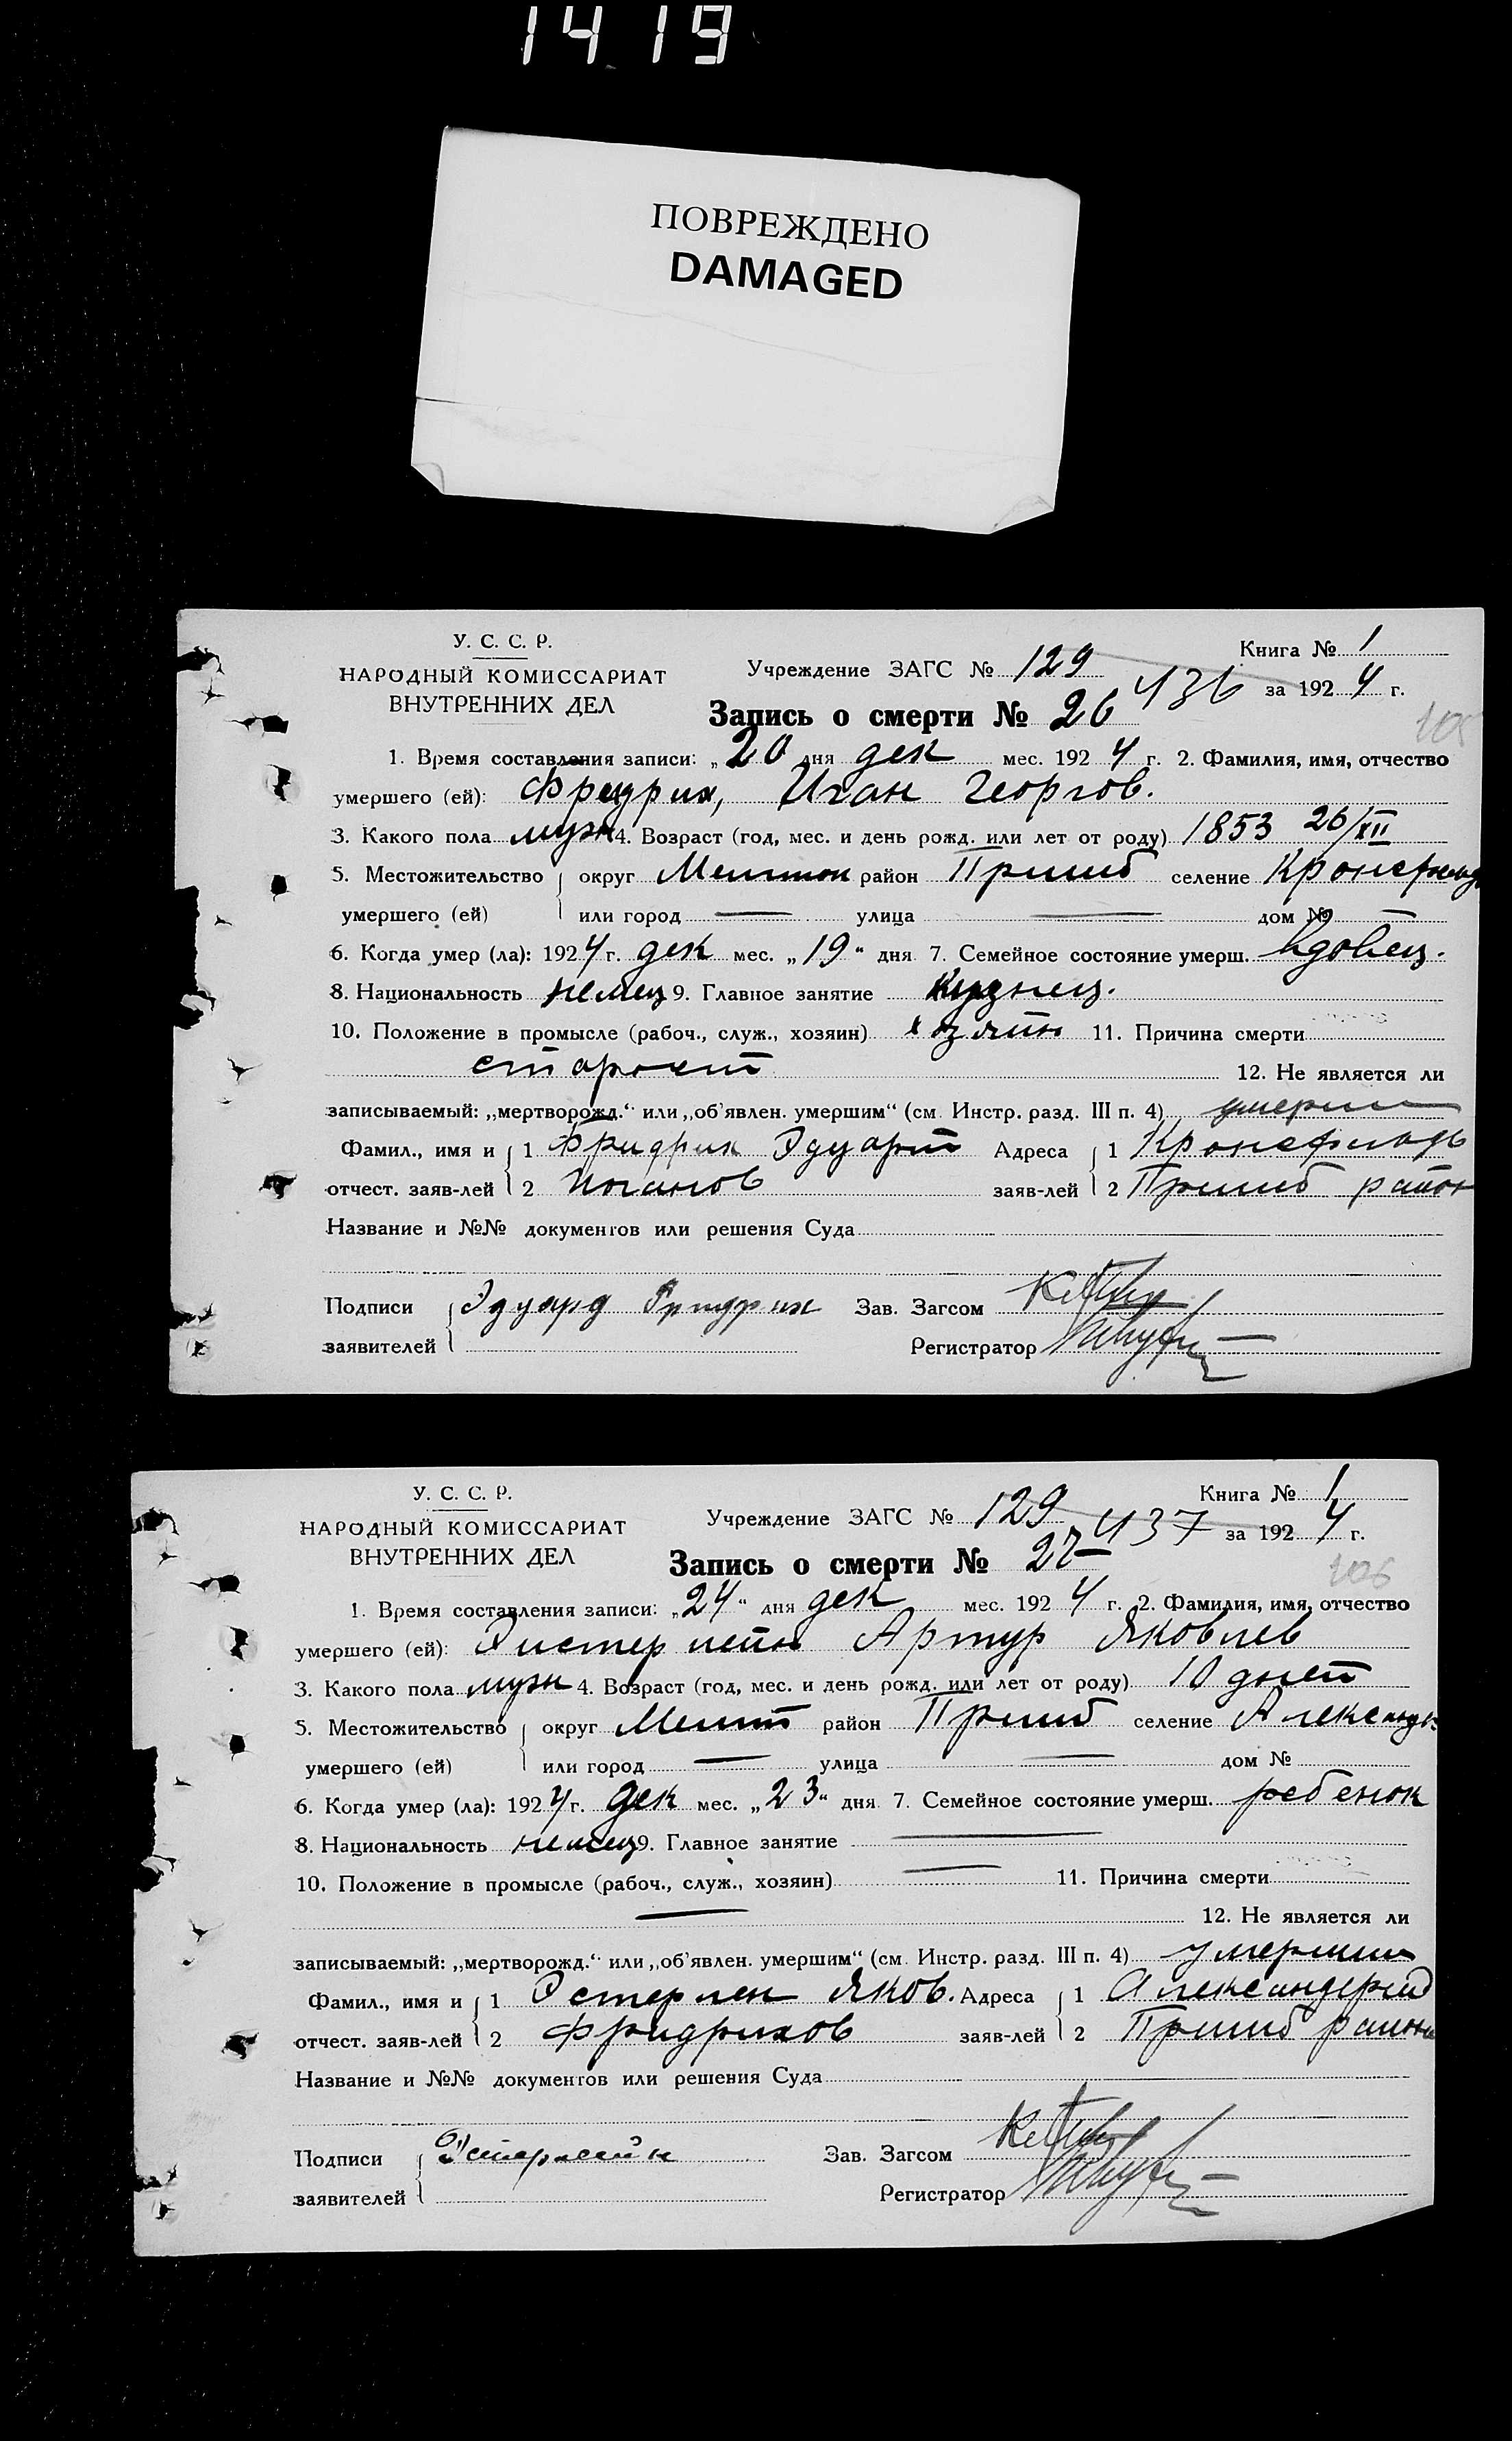 1419
ПОВРЕЖДЕНО
DAMAGED
У. С. С. Р.
НАРОДНЫЙ КОМИССАРИАТ
ВНУТРЕННИХ ДЕЛ
Учреждение ЗАГС № 129
Книга № 1
за 1924 г.
Запись о смерти № 26 436
105
1. Время составления записи: „20 дня дек мес. 1924 г. 2. Фамилия, имя, отчество
умершего (ей): Фридрих, Иган Георгов.
3. Какого пола муж 4. Возраст (год, мес. и день рожд. или лет от роду) 1853 26/XII
5. Местожительство округ Мелитоп район Пришиб селение Кронсфельд
умершего (ей) или город — улица — дом № —
6. Когда умер (ла): 1924 г. дек мес. „19“ дня 7. Семейное состояние умерш. вдовец.
8. Национальность немец 9. Главное занятие кузнец.
10. Положение в промысле (рабоч., служ., хозяин) хозяин 11. Причина смерти
старост
12. Не является ли
записываемый: „мертворожд.“ или „об'явлен. умершим“ (см. Инстр. разд. III п. 4) умерши
Фамил., имя и 1 Фридрих Эдуарт Адреса 1 Кронсфельдь
отчест. заяв-лей 2 Иоганов заяв-лей 2 Пришиб район
Название и №№ документов или решения Суда
Подписи Эдуард Фридрих Зав. Загсом
заявителей Регистратор
У. С. С. Р.
НАРОДНЫЙ КОМИССАРИАТ
ВНУТРЕННИХ ДЕЛ
Учреждение ЗАГС № 129
Книга № 1
за 1924 г.
Запись о смерти № 27 437
106
1. Время составления записи: „24“ дня дек мес. 1924 г. 2. Фамилия, имя, отчество
умершего (ей): Эистерлейн Артур Яковлев
3. Какого пола муж 4. Возраст (год, мес. и день рожд. или лет от роду) 10 дней
5. Местожительство округ Мелит район Пришиб селение Александр
умершего (ей) или город — улица — дом №
6. Когда умер (ла): 1924 г. дек мес. „23“ дня 7. Семейное состояние умерш. ребенок
8. Национальность немец 9. Главное занятие —
10. Положение в промысле (рабоч., служ., хозяин) — 11. Причина смерти
—
12. Не является ли
записываемый: „мертворожд.“ или „об'явлен. умершим“ (см. Инстр. разд. III п. 4) умерший
Фамил., имя и 1 Эстерлен Яков. Адреса 1 Александерфельд
отчест. заяв-лей 2 Фридрихов заяв-лей 2 Пришиб района
Название и №№ документов или решения Суда
Подписи Эстерлейн Зав. Загсом
заявителей Регистратор